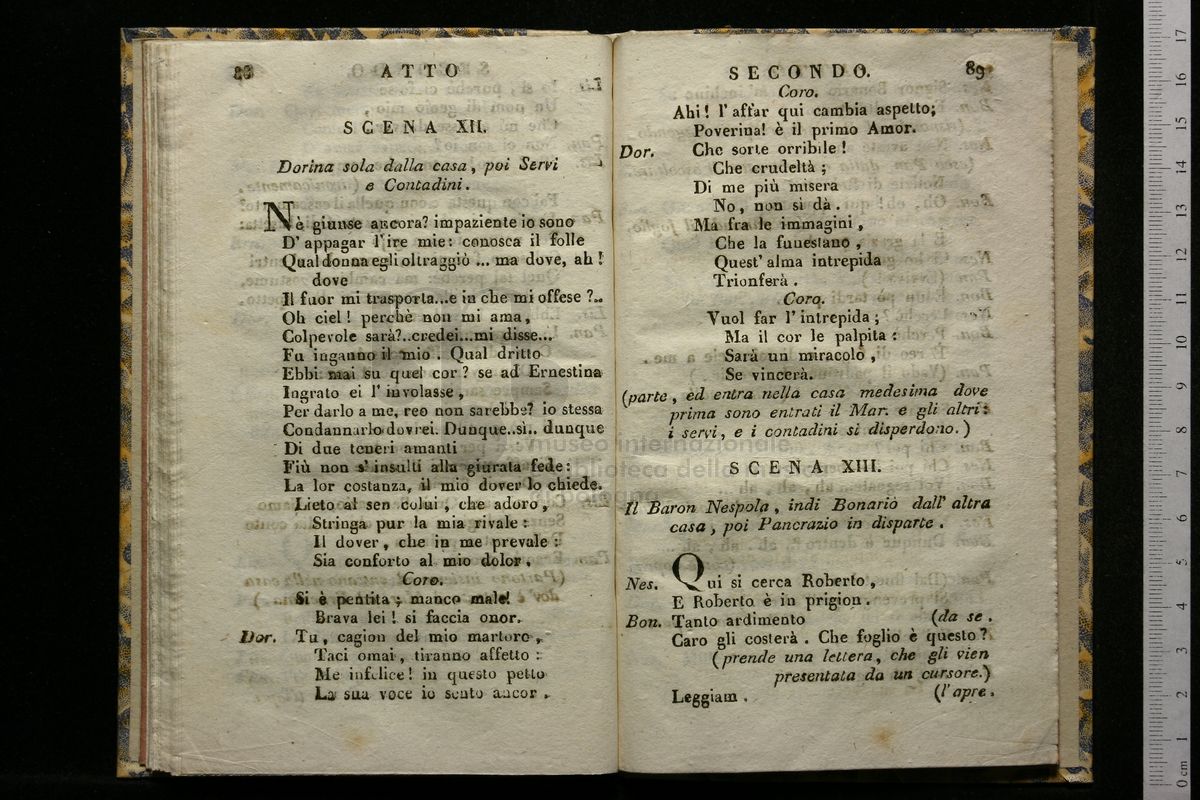 88 ATTO
SCENA XII.
Dorina sola dalla casa, poi Servi
e Contadini.
Nè giunse ancora? impaziente io sono
D' appagar l'ire mie: conosca il folle
Qual donna egli oltraggiò ... ma dove, ah!
dove
Il fuor mi trasporta...e in che mi offese?..
Oh ciel! perchè non mi ama,
Colpevole sarà?..credei...mi disse...
Fu inganno il mio. Qual dritto
Ebbi mai su quel cor? se ad Ernestina
Ingrato ei l'involasse,
Per darlo a me, reo non sarebbe? io stessa
Condannarlo dovrei. Dunque..sì.. dunque
Di due teneri amanti
Più non s'insulti alla giurata fede:
La lor costanza, il mio dover lo chiede.
Lieto al sen colui, che adoro,
Stringa pur la mia rivale:
Il dover, che in me prevale:
Sia conforto al mio dolor.
Coro.
Si è pentita; manco male!
Brava lei! si faccia onor.
Dor. Tu, cagion del mio martoro,
Taci omai, tiranno affetto:
Me infelice! in questo petto
La sua voce io sento ancor.
SECONDO. 89
Coro.
Ahi! l'affar qui cambia aspetto;
Poverina! è il primo Amor.
Dor. Che sorte orribile!
Che crudeltà;
Di me più misera
No, non si dà.
Ma fra le immagini,
Che la funestano,
Quest' alma intrepida
Trionferà.
Coro.
Vuol far l'intrepida;
Ma il cor le palpita:
Sarà un miracolo,
Se vincerà.
(parte, ed entra nella casa medesima dove
prima sono entrati il Mar. e gli altri:
i servi, e i contadini si disperdono.)
SCENA XIII.
Il Baron Nespola, indi Bonario dall' altra
casa, poi Pancrazio in disparte.
Nes. Qui si cerca Roberto,
E Roberto è in prigion.
Bon. Tanto ardimento (da se.
Caro gli costerà. Che foglio è questo?
(prende una lettera, che gli vien
presentata da un cursore.)
Leggiam. (l'apre.
museo internazionale
biblioteca della
17
16
15
14
13
12
11
10
9
8
7
6
5
4
3
2
1
0 cm